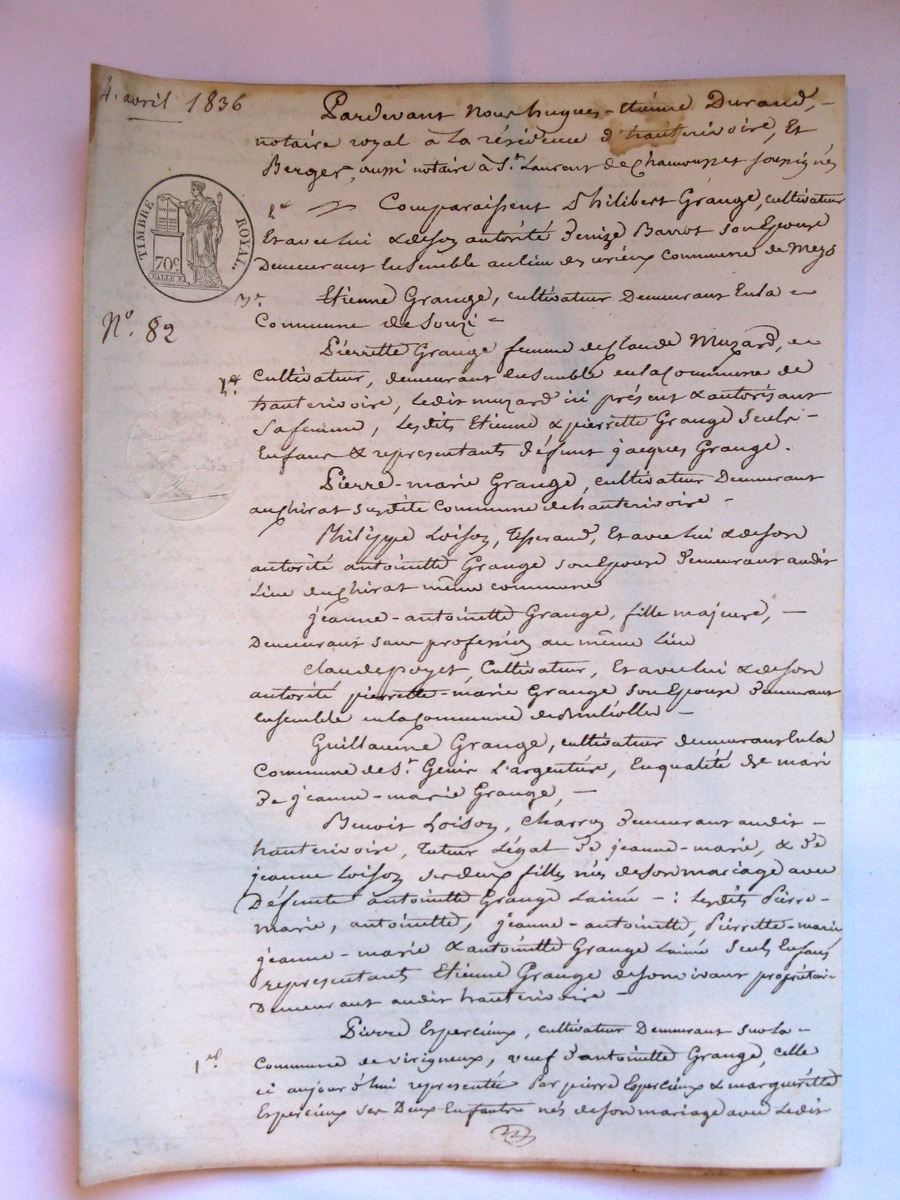 4. avril 1836
Pardevant Nous hugues-Etienne Durand, -
notaire royal à la résidence d'hauterivoire, Et
Berger, aussi notaire à St. Laurent de Chamousset soussignés
Comparaissent Philibert Grange, cultivateur
Et avec lui & de son autorité Denize Barrot son Epouse
Demeurant Ensemble au lieu des commune de Meys
TIMBRE ROYAL
70c
Etienne Grange, cultivateur Demeurant En la =
Commune de Souzi =
No. 82
Pierrette Grange femme de Claude Muzard,
Cultivateur, demeurant Ensemble en la Commune de
hauterivoire, Ledit muzard ici présent & autorisant
Sa femme, Lesdits Etienne & pierrette Grange Seuls -
Enfans & representants défunt jacques Grange.
Pierre-marie Grange, cultivateur Demeurant
au chirat susdite Commune de hauterivoire -
Philippe Loison, Tisserand, Et avec Lui & de son
autorité antoinette Grange son Epouse Demeurant audit
Lieu du chirat même commune
jeanne-antoinette Grange, fille majeure, -
Demeurant sans profession au même Lieu
Claude poyet, Cultivateur, Et avec lui & de son
autorité pierrette-marie Grange son Epouse Demeurant
ensemble en la Commune de Brulliolles -
Guillaume Grange, cultivateur demeurant En la
Commune de St. Genis L'argentière, En qualité de mari
De jeanne-marie Grange, -
Benoit Loison, Charron Demeurant audit -
hauterivoire, Tuteur Légal De jeanne-marie, & De
jeanne Loison ses deux filles nées de son mariage avec
Défunte antoinette Grange Lainée - : Lesdits Pierre-
marie, antoinette, jeanne-antoinette, Pierrette-marie
jeanne-marie & antoinette Grange Lainée Seuls Enfans
representants Etienne Grange de son vivant propriétaire
Demeurant audit hauterivoire -
Pierre Espercieux, cultivateur Demeurant Sur la =
Commune de virigneux, veuf d'antoinette Grange, celle
ci aujourd'hui representée Par pierre Espercieux & margueritte
Espercieux Ses Deux Enfants nés de son mariage avec Ladite